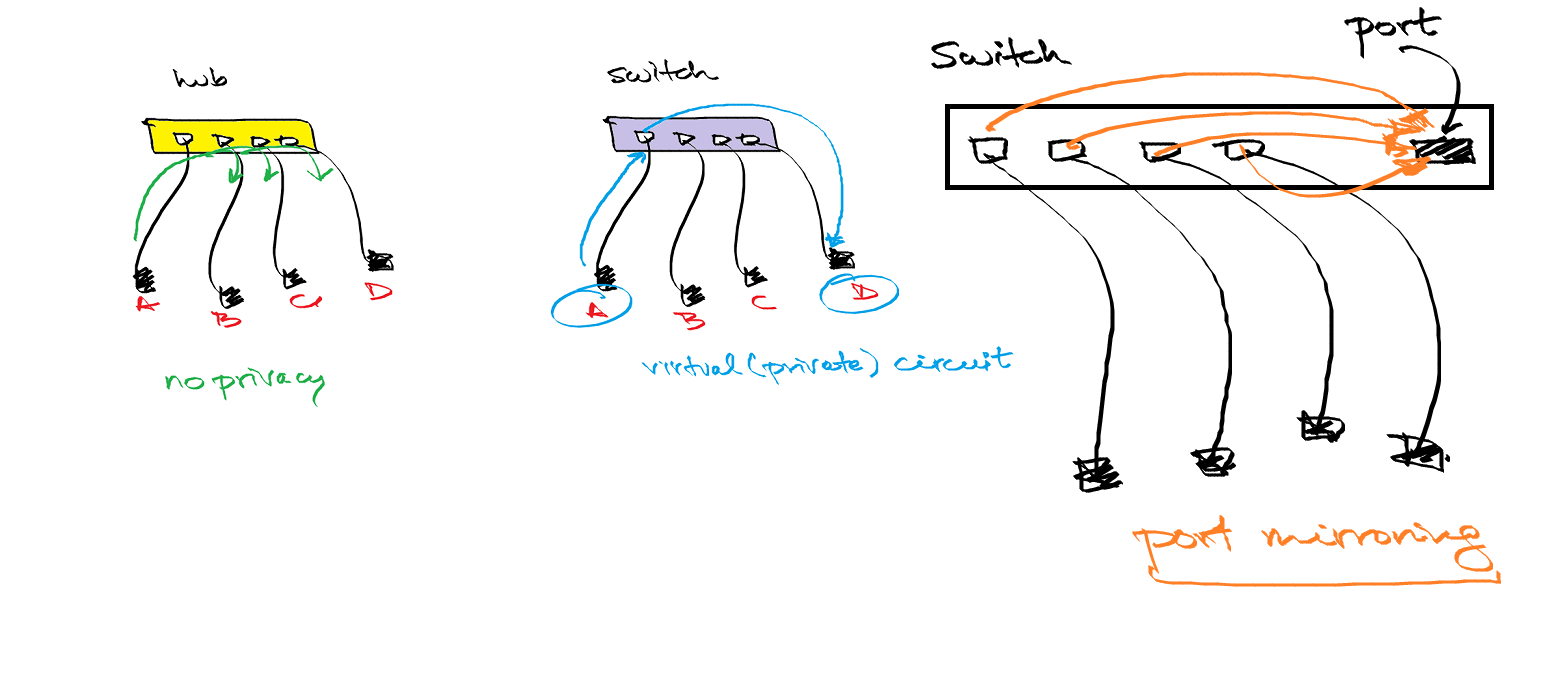 hub
A
B
C
D
no privacy
switch
A
B
C
D
virtual (private) circuit
Switch
port
port mirroring